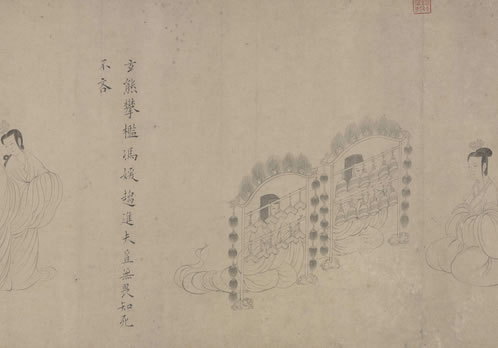 玄熊攀檻馮媛趨進夫豈無畏知死
不吝